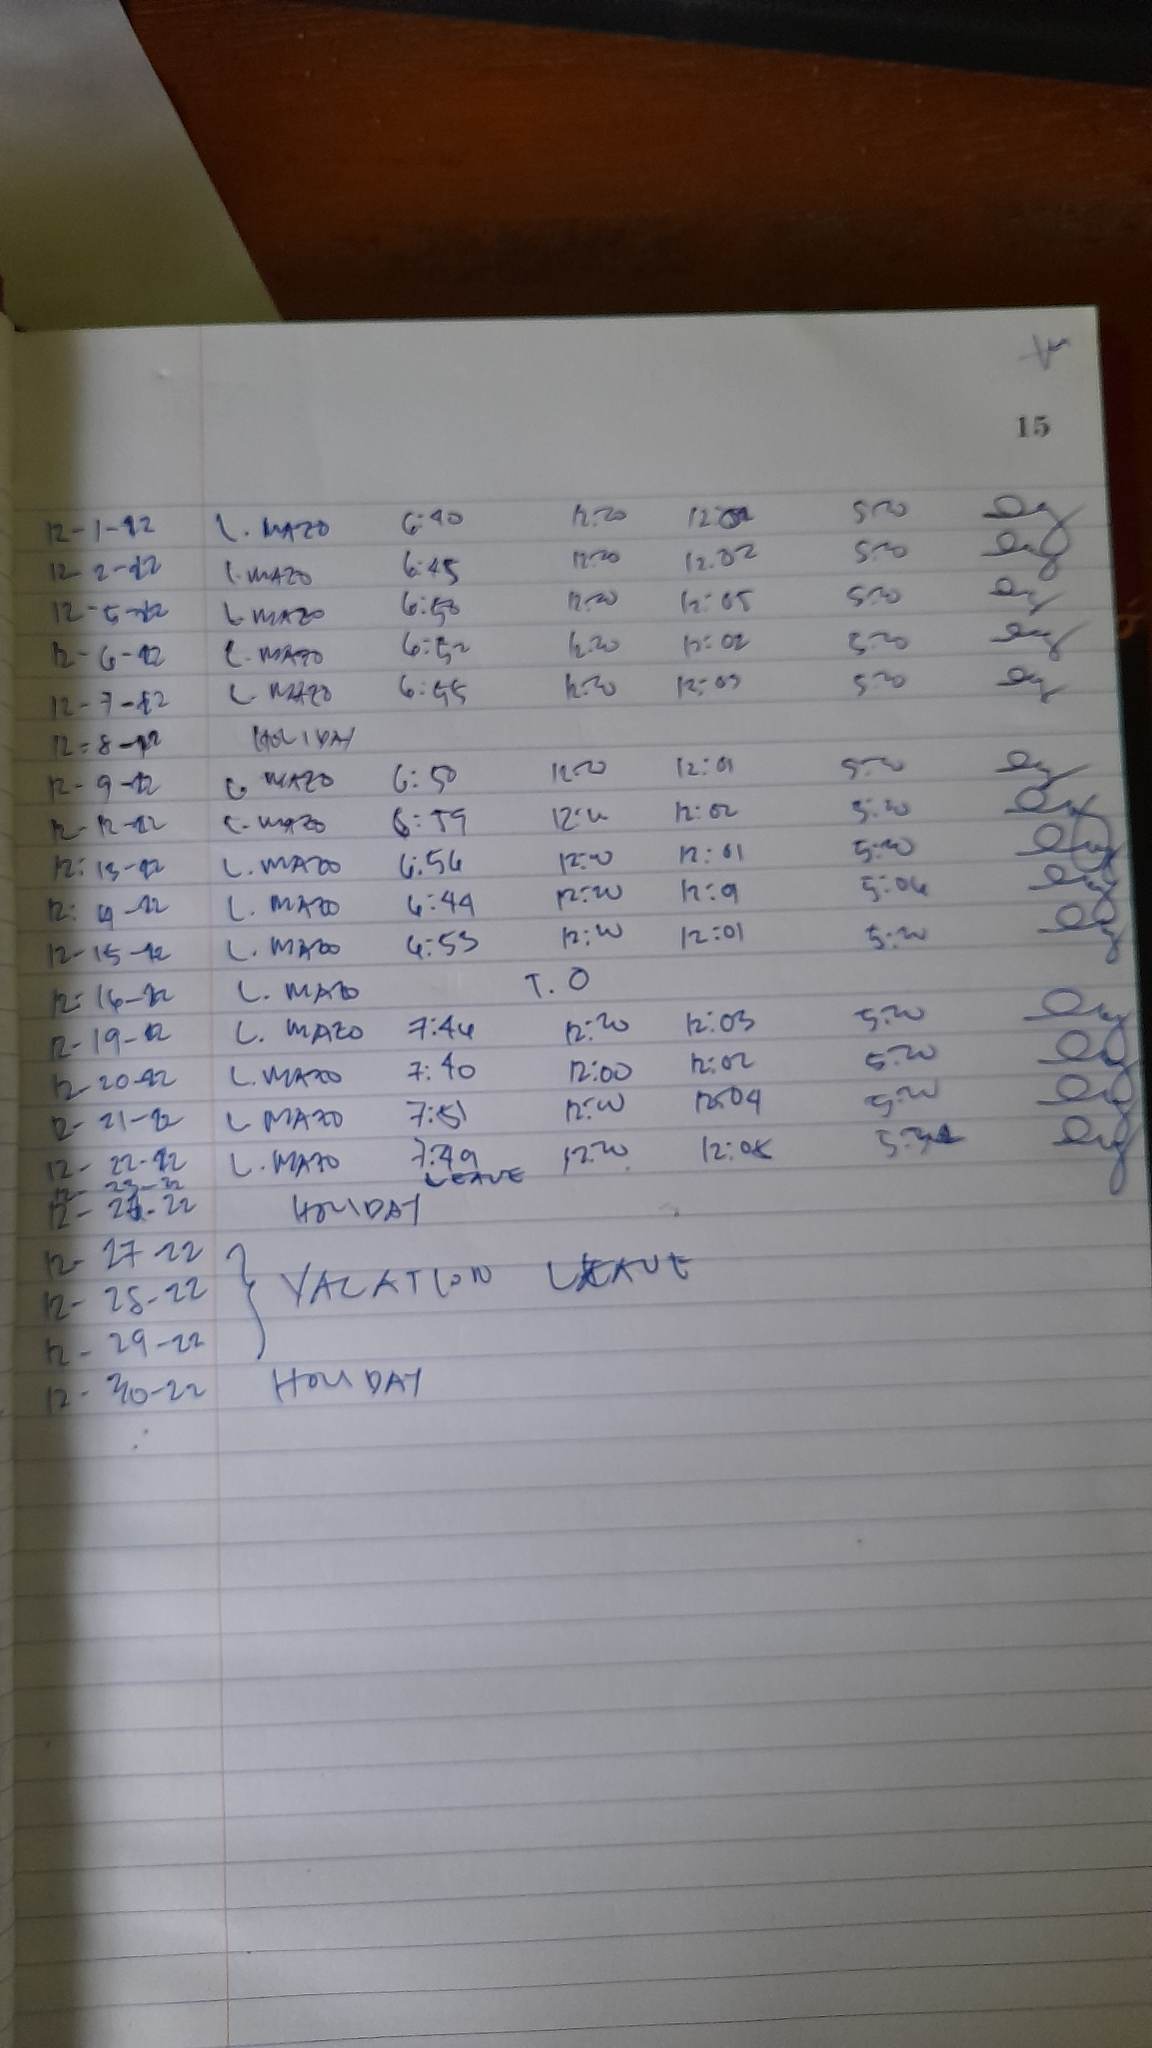 15
12-1-22 L. MAZO 6:40 12:20 5:20
12-2-22 L. MAZO 6:45 12:20 12:02 5:20
12-5-22 L. MAZO 6:50 12:20 12:05 5:20
12-6-22 L. MAZO 6:52 12:20 12:02 5:20
12-7-22 L. MAZO 6:55 12:20 12:03 5:20
12-8-22 HOLIDAY
12-9-22 L. MAZO 6:50 12:20 12:01 5:20
12-12-22 L. MAZO 6:59 12:02 5:20
12:13-22 L. MAZO 6:56 12:20 12:01 5:20
L. MAZO 6:44 12:20 5:06
12-15-22 L. MAZO 6:53 12:20 12:01 5:20
12:16-22 L. MAZO T.O
12-19-22 L. MAZO 7:46 12:20 12:03 5:20
12-20-22 L. MAZO 7:40 12:00 12:02 5:20
12-21-22 L. MAZO 7:51 12:20 12:04 5:20
12-22-22 L. MAZO 7:49 12:20
12-23-22 LEAVE
HOLIDAY
12-27-22
12-28-22 VACATION LEAVE
12-29-22
12-30-22 HOLIDAY